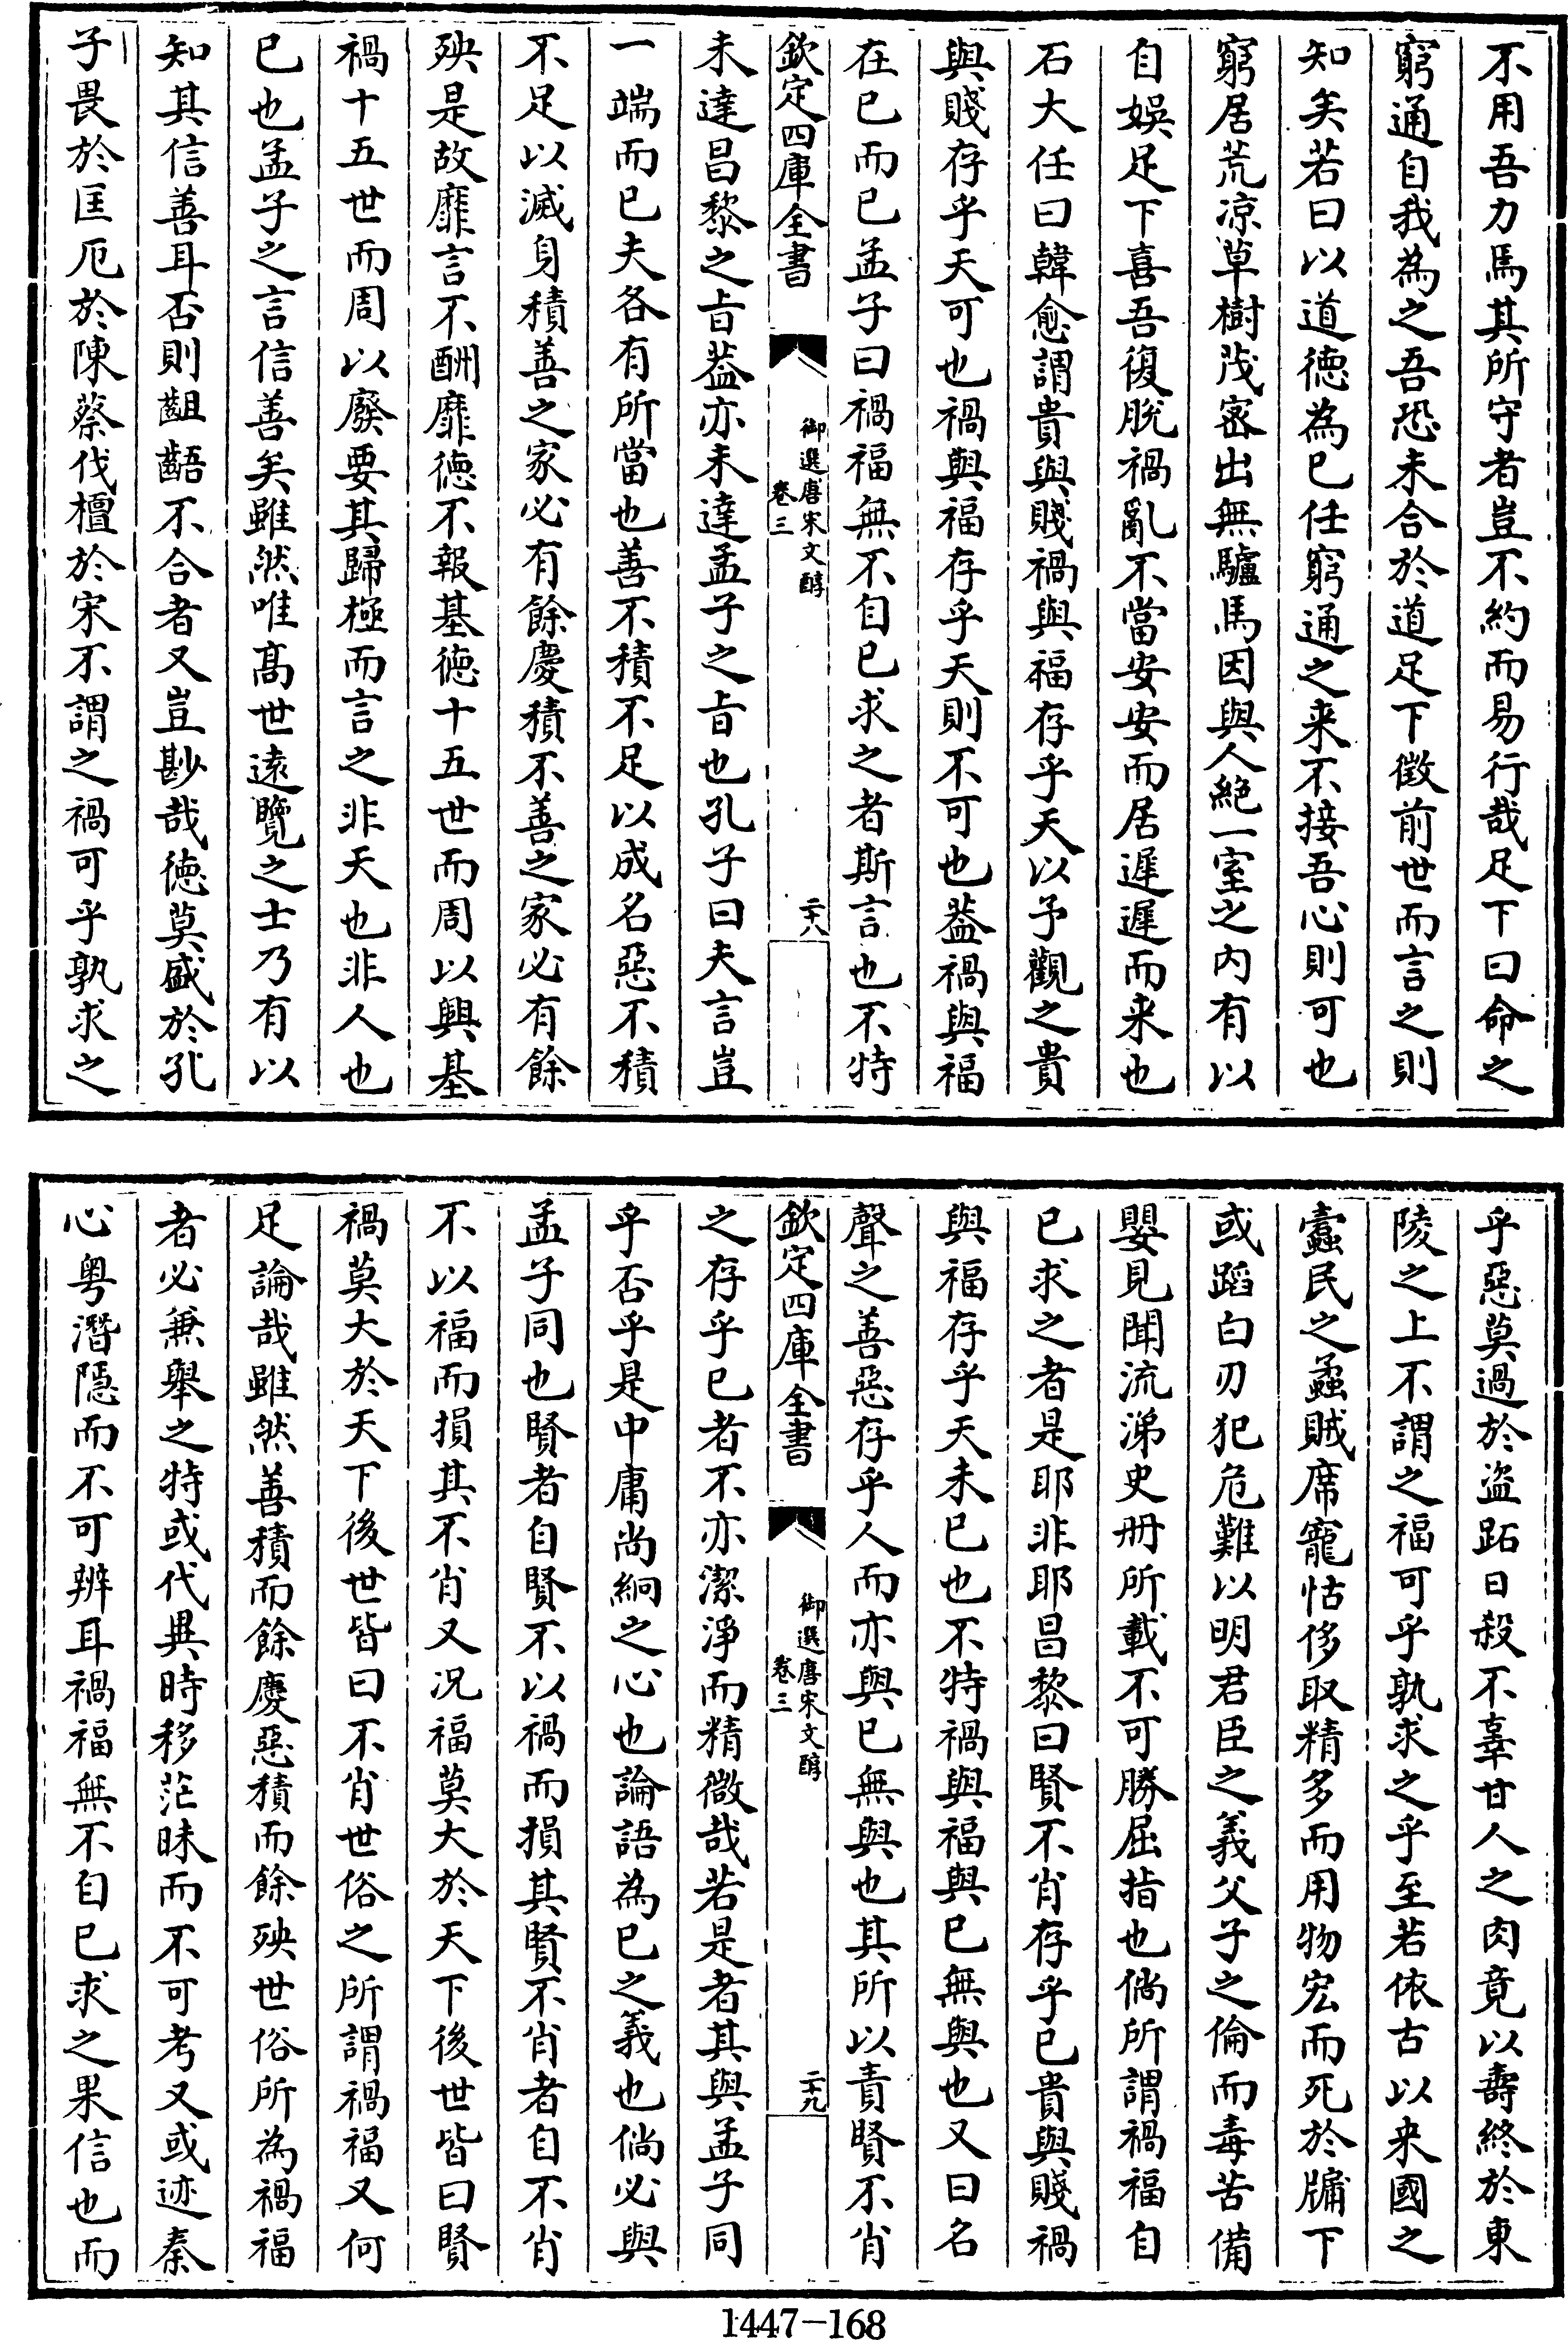 不用吾力馬其所守者豈不約而易行哉足下曰命之
窮通自我為之吾恐未合於道足下徴前世而言之則
知矣若曰以道德為已任窮通之来不接吾心則可也
窮居荒凉草樹茂宻出無驢馬因與人絶一室之内有以
自娯足下喜吾復脱禍亂不當安安而居遲遲而来也
石大任曰韓愈謂貴與賤禍與福存乎天以予觀之貴
與賤存乎天可也禍與福存乎天則不可也葢禍與福
在已而已孟子曰禍福無不自已求之者斯言也不特
欽定四庫全書
御選唐宋文醇
卷三
二十八
未達昌黎之㫖葢亦未達孟子之㫖也孔子曰夫言豈
一端而已夫各有所當也善不積不足以成名惡不積
不足以滅身積善之家必有餘慶積不善之家必有餘
殃是故靡言不酬靡徳不報基徳十五世而周以興基
禍十五世而周以廢要其歸極而言之非天也非人也
已也孟子之言信善矣雖然唯髙世逺覽之士乃有以
知其信善耳否則齟齬不合者又豈尠哉徳莫盛於孔
子畏於匡厄於陳蔡伐檀於宋不謂之禍可乎孰求之
乎惡莫過於盗跖日殺不辜甘人之肉竟以壽終於東
陵之上不謂之福可乎孰求之乎至若依古以来國之
蠧民之蟊賊席寵怙侈取精多而用物宏而死於牖下
或蹈白刃犯危難以明君臣之義父子之倫而毒苦備
嬰見聞流涕史册所載不可勝屈指也倘所謂禍福自
已求之者是耶非耶昌黎曰賢不肖存乎已貴與賤禍
與福存乎天未已也不特禍與福與已無與也又曰名
聲之善惡存乎人而亦與已無與也其所以責賢不肖
欽定四庫全書
御選唐宋文醇
卷三
二十九
之存乎已者不亦潔淨而精微哉若是者其與孟子同
乎否乎是中庸尚絅之心也論語為已之義也倘必與
孟子同也賢者自賢不以禍而損其賢不肖者自不肖
不以福而損其不肖又况福莫大於天下後世皆曰賢
禍莫大於天下後世皆曰不肖世俗之所謂禍福又何
足論哉雖然善積而餘慶惡積而餘殃世俗所為禍福
者必兼舉之特或代異時移茫昧而不可考又或迹秦
心粤潛隱而不可辨耳禍福無不自已求之果信也而
1447-168